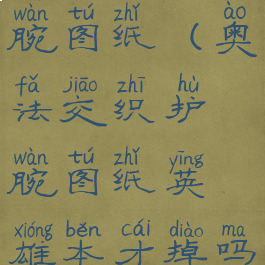 wàn tú zhǐ ào
腕图纸（奥
fǎ jiāo zhī hù
法交织护
wàn tú zhǐ yīng
腕图纸英
xióng běn cái diào ma
雄本才掉吗